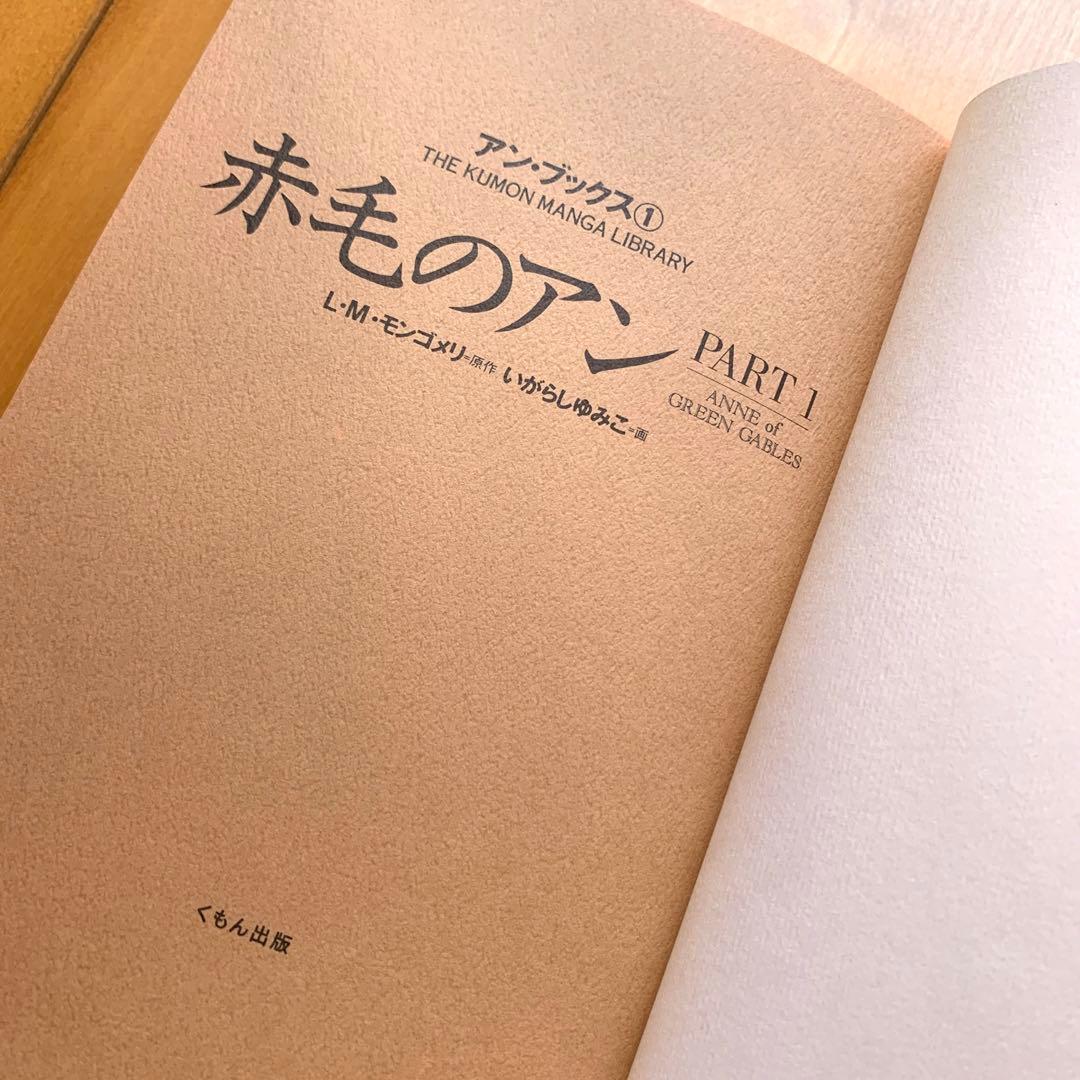 アン・ブックス①
THE KUMON MANGA LIBRARY
赤毛のアン
PART 1
ANNE of
GREEN GABLES
L・M・モンゴメリ=原作 いがらしゆみこ=画
くもん出版